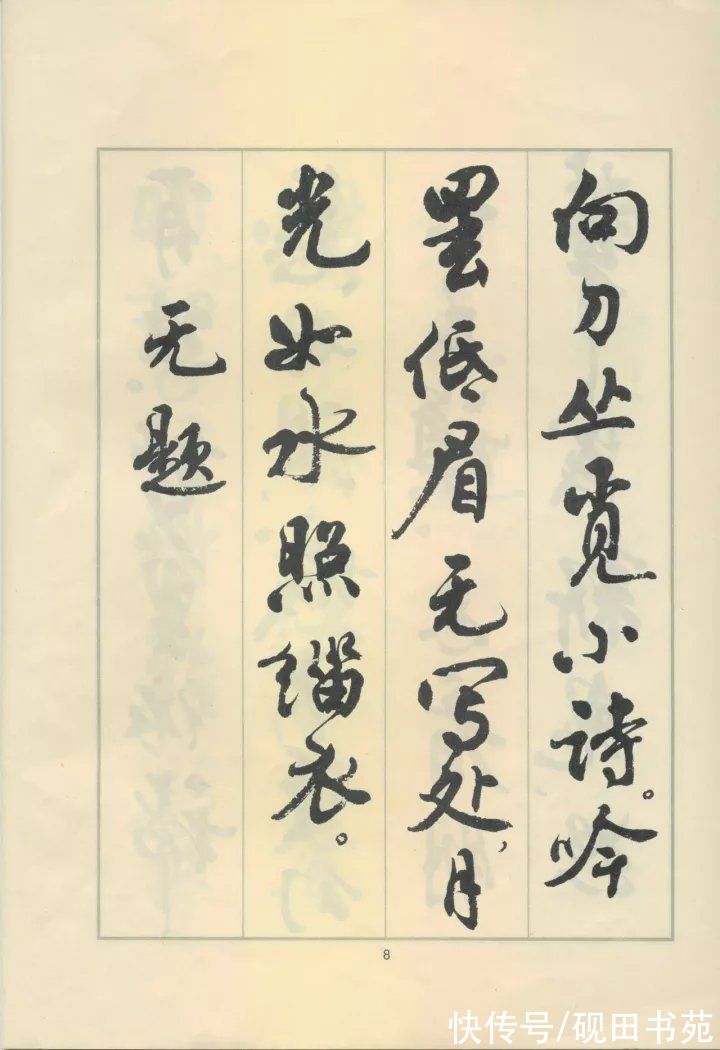 向刀丛觅小诗。吟
罢低眉无写处,月
光如水照缁衣。
无题
8
快传号/砚田书苑